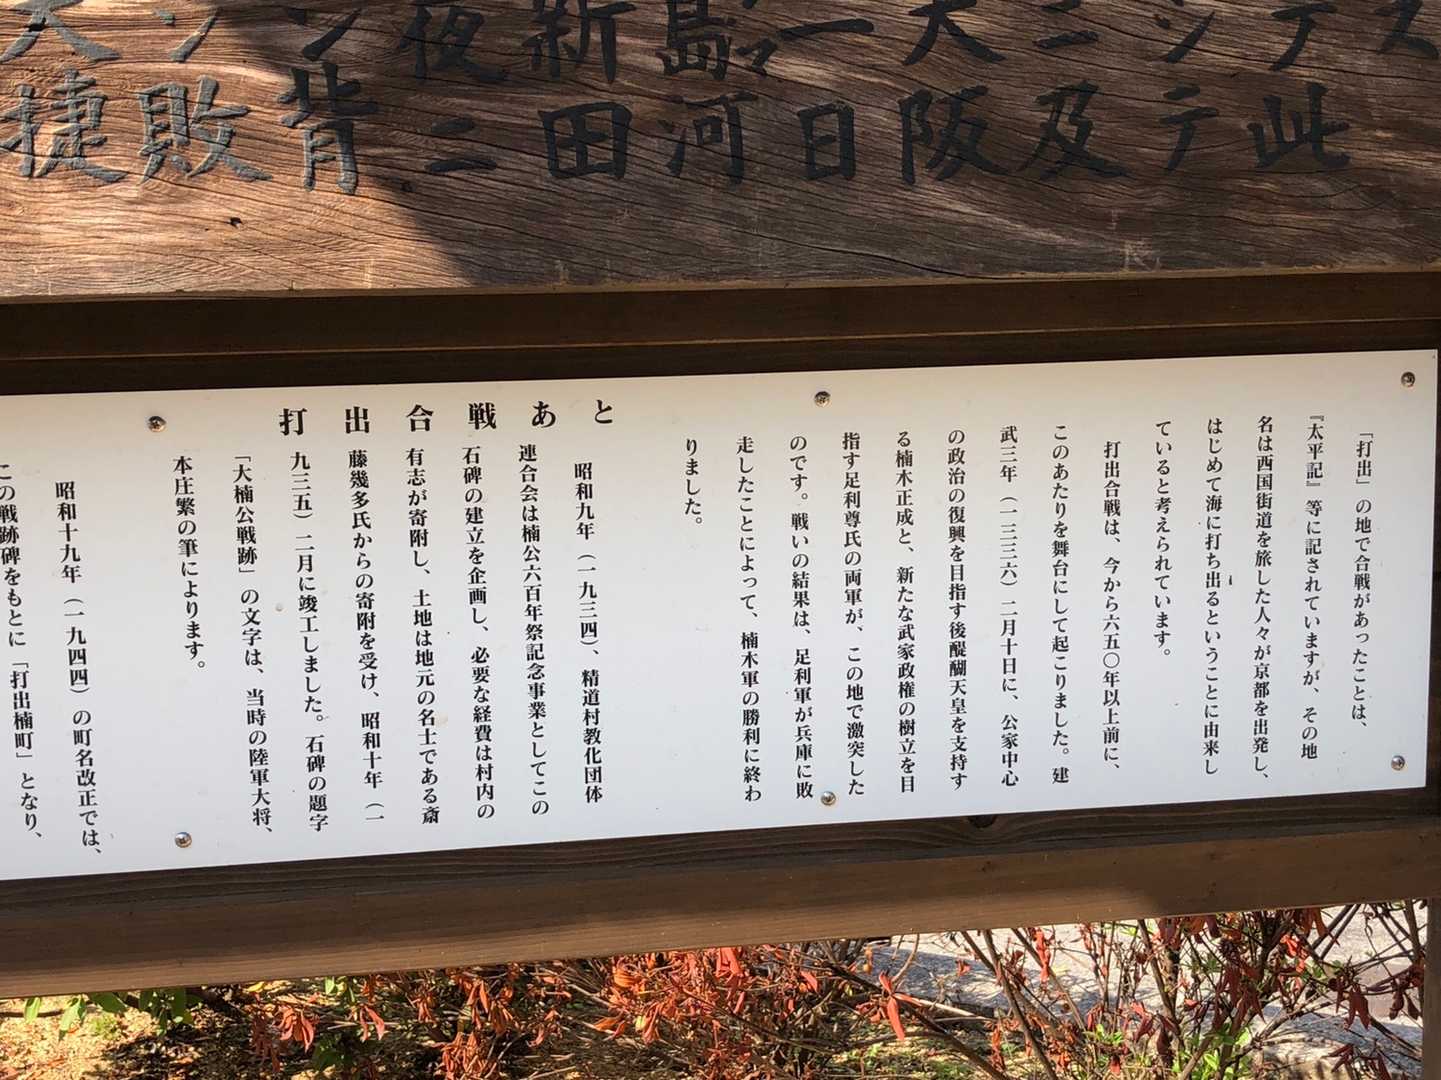 ステ此
シテ
ニ及
大阪
一日
島マ河
新田
夜ニ
シ背
ソ敗
大捷
「打出」の地で合戦があったことは、
『太平記』等に記されていますが、その地
名は西国街道を旅した人々が京都を出発し、
はじめて海に打ち出るということに由来し
ていると考えられています。
打出合戦は、今から六五〇年以上前に、
このあたりを舞台にして起こりました。建
武三年（一三三六）二月十日に、公家中心
の政治の復興を目指す後醍醐天皇を支持す
る楠木正成と、新たな武家政権の樹立を目
指す足利尊氏の両軍が、この地で激突した
のです。戦いの結果は、足利軍が兵庫に敗
走したことによって、楠木軍の勝利に終わ
りました。
打出合戦あと
昭和九年（一九三四）、精道村教化団体
連合会は楠公六百年祭記念事業としてこの
石碑の建立を企画し、必要な経費は村内の
有志が寄附し、土地は地元の名士である斎
藤幾多氏からの寄附を受け、昭和十年（一
九三五）二月に竣工しました。石碑の題字
「大楠公戦跡」の文字は、当時の陸軍大将、
本庄繁の筆によります。
昭和十九年（一九四四）の町名改正では、
この戦跡碑をもとに「打出楠町」となり、